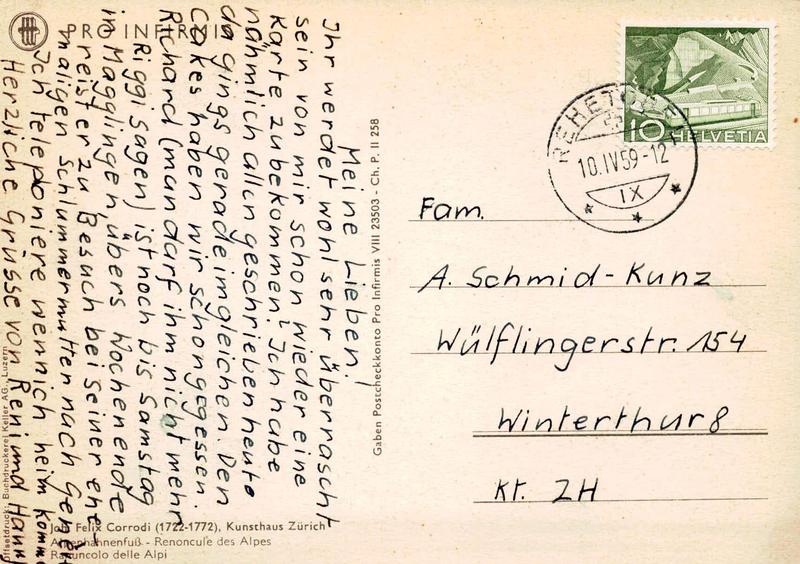 PRO INFIRMIS
Meine Lieben!
Ihr werdet wohl sehr überrascht
sein von mir schon wieder eine
Karte zu bekommen? Ich habe
nähmlich allen geschrieben heute
da gings gerade im gleichen. Den
Cakes haben wir schon gegessen.
Richard (man darf ihm nicht mehr
Riggi sagen) ist noch bis Samstag
in Magglingen, übers Wochenende
reist er zu Besuch bei seiner ehe-
maligen Schlummermutter nach Genf
Ich telephoniere wenn ich heim komme
Herzliche Grüsse von Reni und
Gaben Postcheckkonto Pro Infirmis VIII 23503 - Ch. P. II 258
Offsetdruck: Buchdruckerei Keller AG., Luzern
Joh. Felix Corrodi (1722-1772), Kunsthaus Zürich
Alpenhahnenfuß - Renoncule des Alpes
Ranuncolo delle Alpi
10 HELVETIA
REHETOBEL
10.IV.59-12
IX
Fam.
A. Schmid-Kunz
Wülflingerstr. 154
Winterthur 8
Kt. ZH